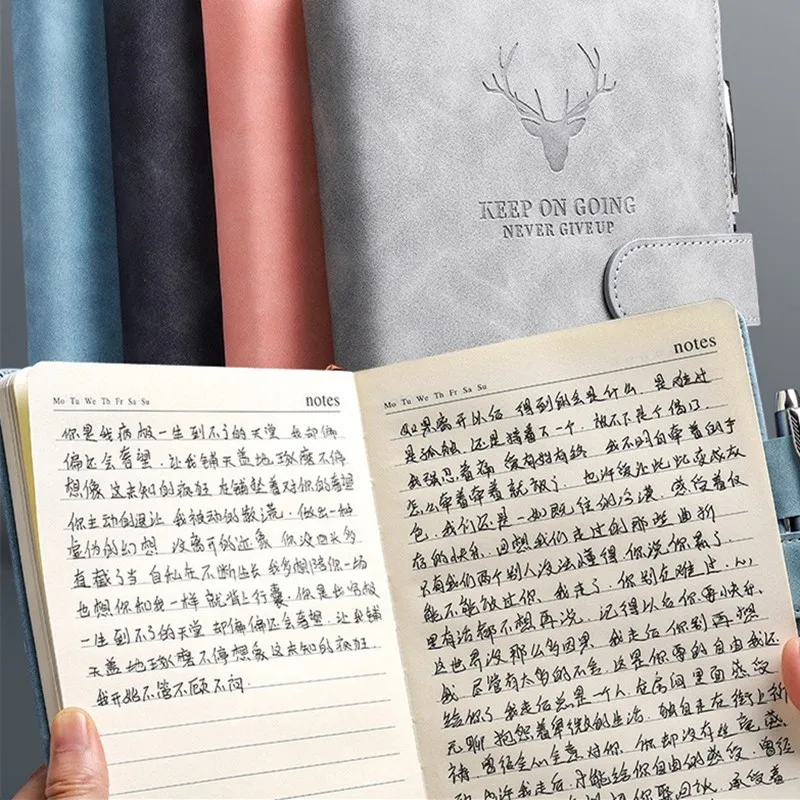 KEEP ON GOING
NEVER GIVE UP
Mo Tu We Th Fr Sa Su notes
你是我病极一生到不了的天堂 我却偏
偏还会奢望 让我铺天盖地琢磨不停
想像 这未知的疯狂 在铺垫着对你的奢望
你主动的退让 我被动的散慌 做出一些
虚伪的幻想 没离可的迹象 你没回头多
直截了当 自私在不断生长 我多想陪你一场
也想你和我一样 就背上行囊 你是我穷极
一生到不了的天堂 却偏偏还会奢望 让我铺
天盖地琢磨不停想象 这未知的疯狂
我开始不管不顾不问
Mo Tu We Th Fr Sa Su notes
如果离开以后 得到的会是什么 是难过
是孤独 还是
我强忍着痛
怎么牵着牵着就散了 也许
色 我们还是一如既往的冷漠 感受着仅
在的快乐 回想我们走过的那些曲折
只有我们两个别人没法懂得 你说你累了
能不能放过你 我走了 你别在难过
里有话都不想再说 记得以后你要快乐
这世界没那么多因果 我走后你别再想
我 尽管有太多的不舍 这是你要的自由我还
给你了 我走后总是一个人 在房间里面感受
无聊 抱怨着卑微的生活 独自走在街上
曾经全心全意对你 你却没有
我走后 才能给你自由的感受 曾经